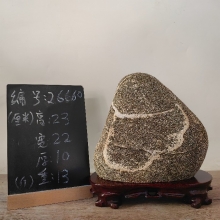 编号:26660
(厘米)高:23
宽22
厚10
(斤)重:13